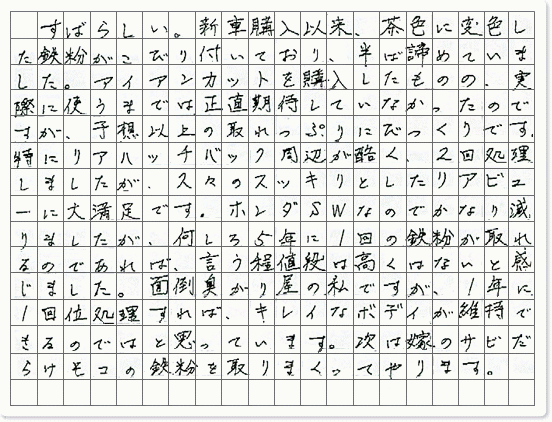 すばらしい。新車購入以来、茶色に変色し
た鉄粉がこびり付いており、半ば諦めていま
した。アイアンカットを購入したものの、実
際に使うまでは正直期待していなかったので
すが、予想以上の取れっぷりにびっくりです。
特にリアハッチバック周辺が酷く、2回処理
しましたが、久々のスッキリとしたリアビュ
ーに大満足です。ホンダSWなのでかなり減
りましたが、何しろ5年に1回の鉄粉が取れ
るのであれば、言う程値段は高くはないと感
じました。面倒臭がり屋の私ですが、1年に
1回位処理すれば、キレイなボディが維持で
きるのではと思っています。次は嫁のサビだ
らけモコの鉄粉を取りまくってやります。